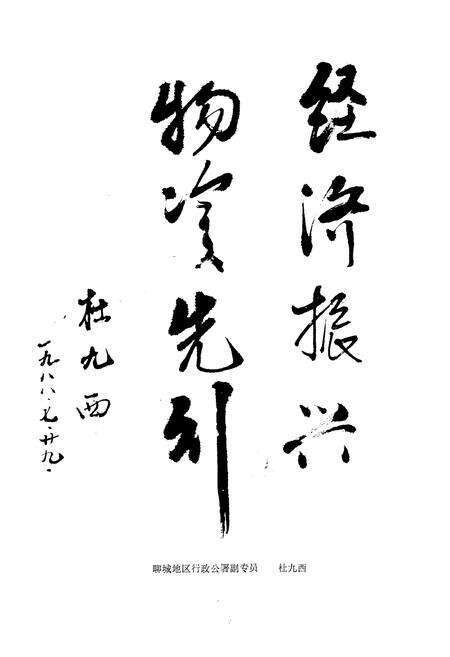 经济振兴
物资先引
杜九西
一九八八·七·廿九·
聊城地区行政公署副专员 杜九西